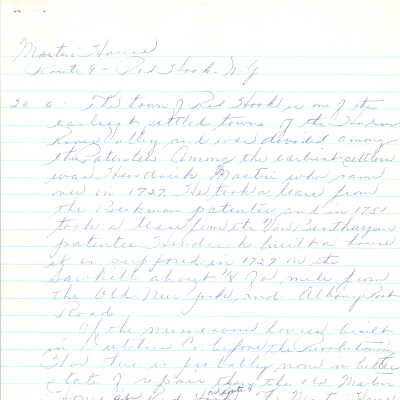 Martin House
Route 9 - Red Hook - N.Y.
20 6: The town of Red Hook is one of the
earliest settled towns of the Hudson
River Valley and was divided among
three patentees. Among the earliest settlers
was Hendrick Martin who came
over in 1727. He took a lease from
the Beekman patentee and in 1751
took a lease from the Van Benthuysen
patentee. Hendrick built a house
it is supposed in 1727 on the
Sawkill about 1/8 of a mile from
the Old New York and Albany Post
Road.
Of the numerous houses built
in Dutchess Co. before the Revolutionary
War there is probably none in better
state of repair than the Old Martin
House at Red Hook
on route 9